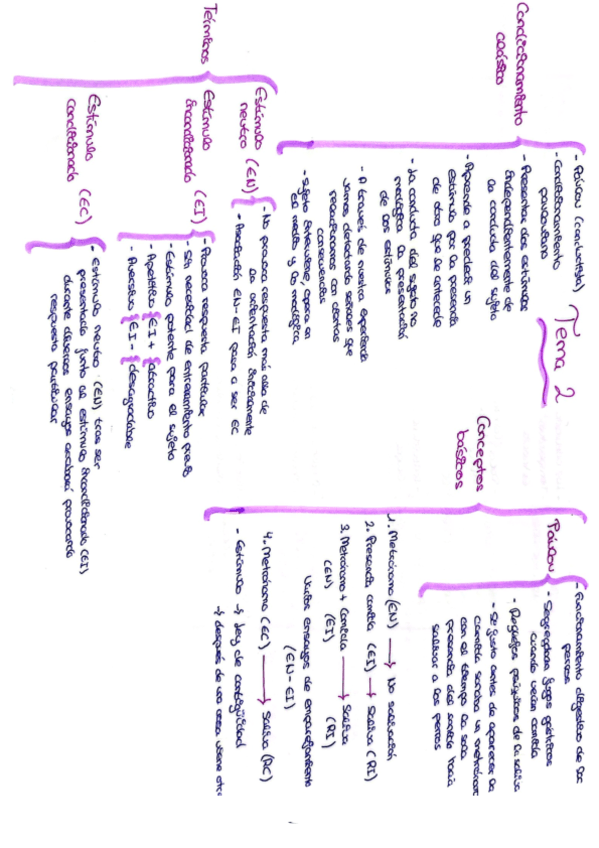 Tema 2
Condicionamiento
clásico
- Pávlov (conductista)
- Condicionamiento
pavloviano
- Presentar dos estímulos
independientemente de
la conducta del sujeto
- Aprende a predecir un
estímulo por la presencia
de otro que le antecede
- La conducta del sujeto no
modifica la presentación
de los estímulos
- A través de nuestra experiencia
vamos detectando señales que
relacionamos con ciertas
consecuencias
- Sujeto interviene, opera en
el medio y lo modifica
Términos
Estímulo
neutro (EN)
- No provoca respuesta más allá de
la orientación inicialmente
- Asociación EN-EI pasa a ser EC
Estímulo
incondicionado (EI)
- Provoca respuesta particular
- Sin necesidad de entrenamiento previo
- Estímulo potente para el sujeto
- Apetitivo { EI + { atractivo
- Aversivo { EI - { desagradable
Estímulo
condicionado (EC)
- Estímulo neutro (EN) tras ser
presentado junto al estímulo incondicionado (EI)
durante diversos ensayos acabará provocando
respuesta particular
Conceptos
básicos
Pávlov
- Funcionamiento digestivo de los
perros
- Segregaban jugos gástricos
cuando veían comida
- Reflejos psíquicos de la saliva
- Si justo antes de aparecer la
comida sonaba un metrónomo
con el tiempo la sola
presencia del sonido hacía
salivar a los perros
1. Metrónomo (EN) → No salivación
2. Presencia comida (EI) → Saliva (RI)
3. Metrónomo + Comida → Saliva
(EN) (EI) (RI)
Varios ensayos de emparejamiento
(EN-EI)
4. Metrónomo (EC) → Saliva (RC)
- Estímulo → Ley de contigüidad
↳ después de una cosa viene otra